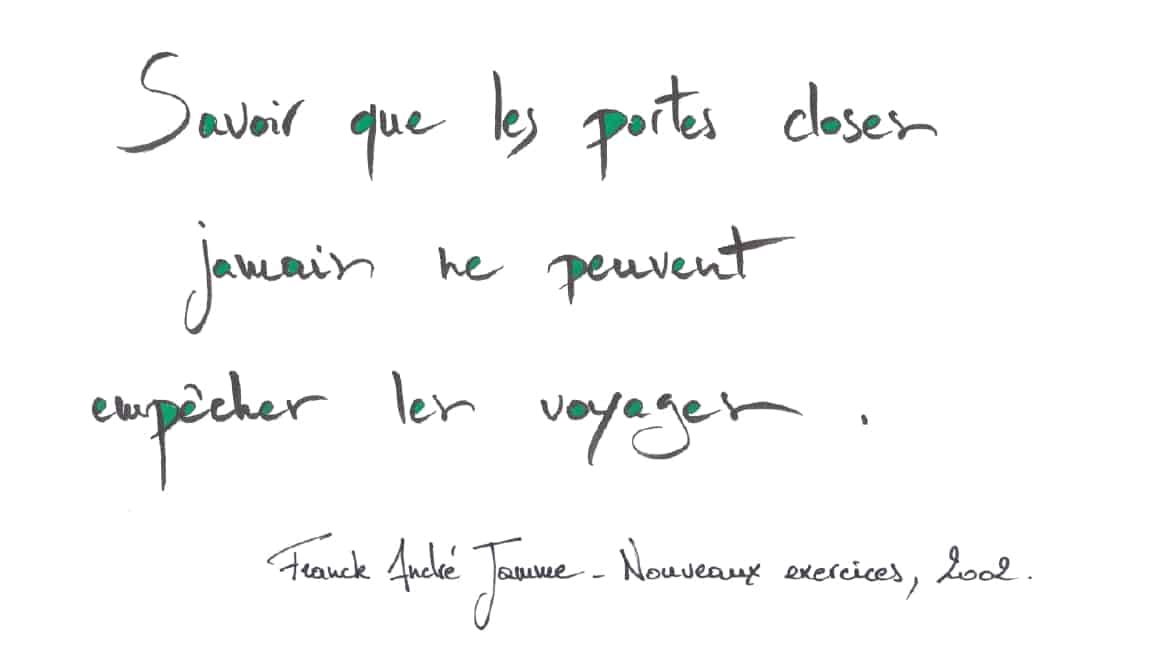 Savoir que les portes closes
jamais ne peuvent
empêcher les voyages .
Franck André Jamme - Nouveaux exercices, 2002.